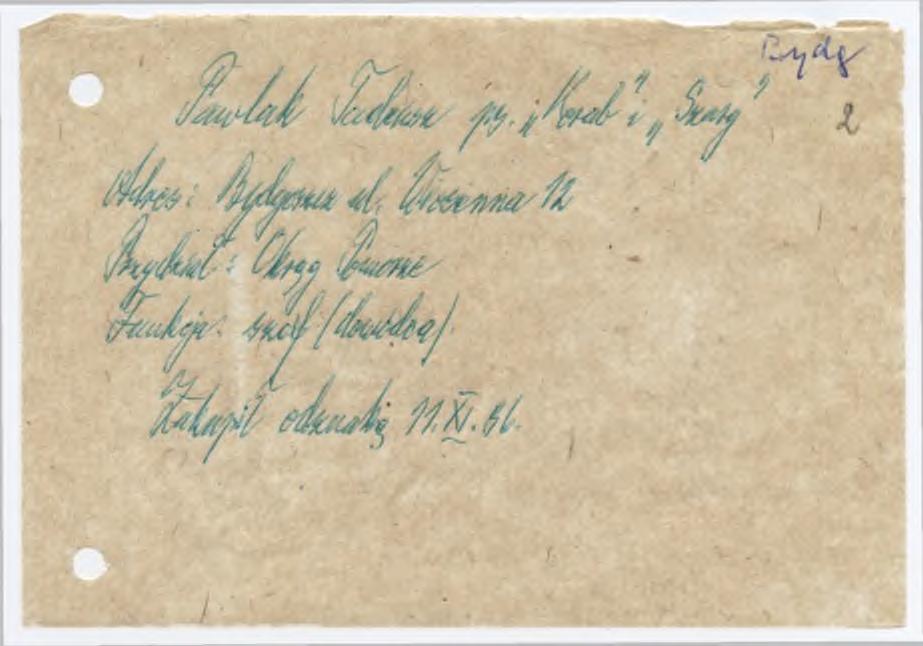 Bydg
Pawlak Tadeusz ps. „Korab” i „Szary”
2
Adres: Bydgoszcz ul. Wiosenna 12
Przydział: Okręg Pomorze
Funkcja: szef (dowódca)
Zakupił odznakę 11.XI.86.